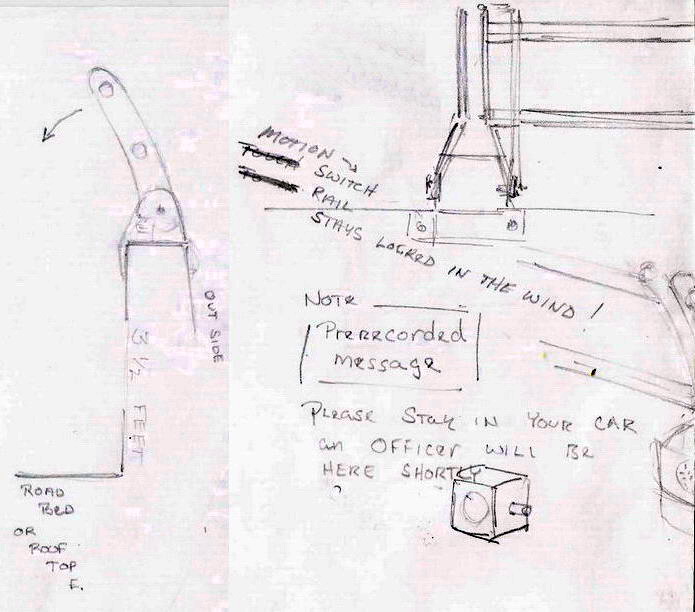 OUT SIDE
3 1/2 FEET
ROAD
BED
OR
ROOF
TOP
E.
MOTION
SWITCH
RAIL
STAYS LOCKED IN THE WIND!
NOTE
Prerecorded
message
Please Stay in Your CAR
an OFFICER WILL BE
HERE SHORTLY